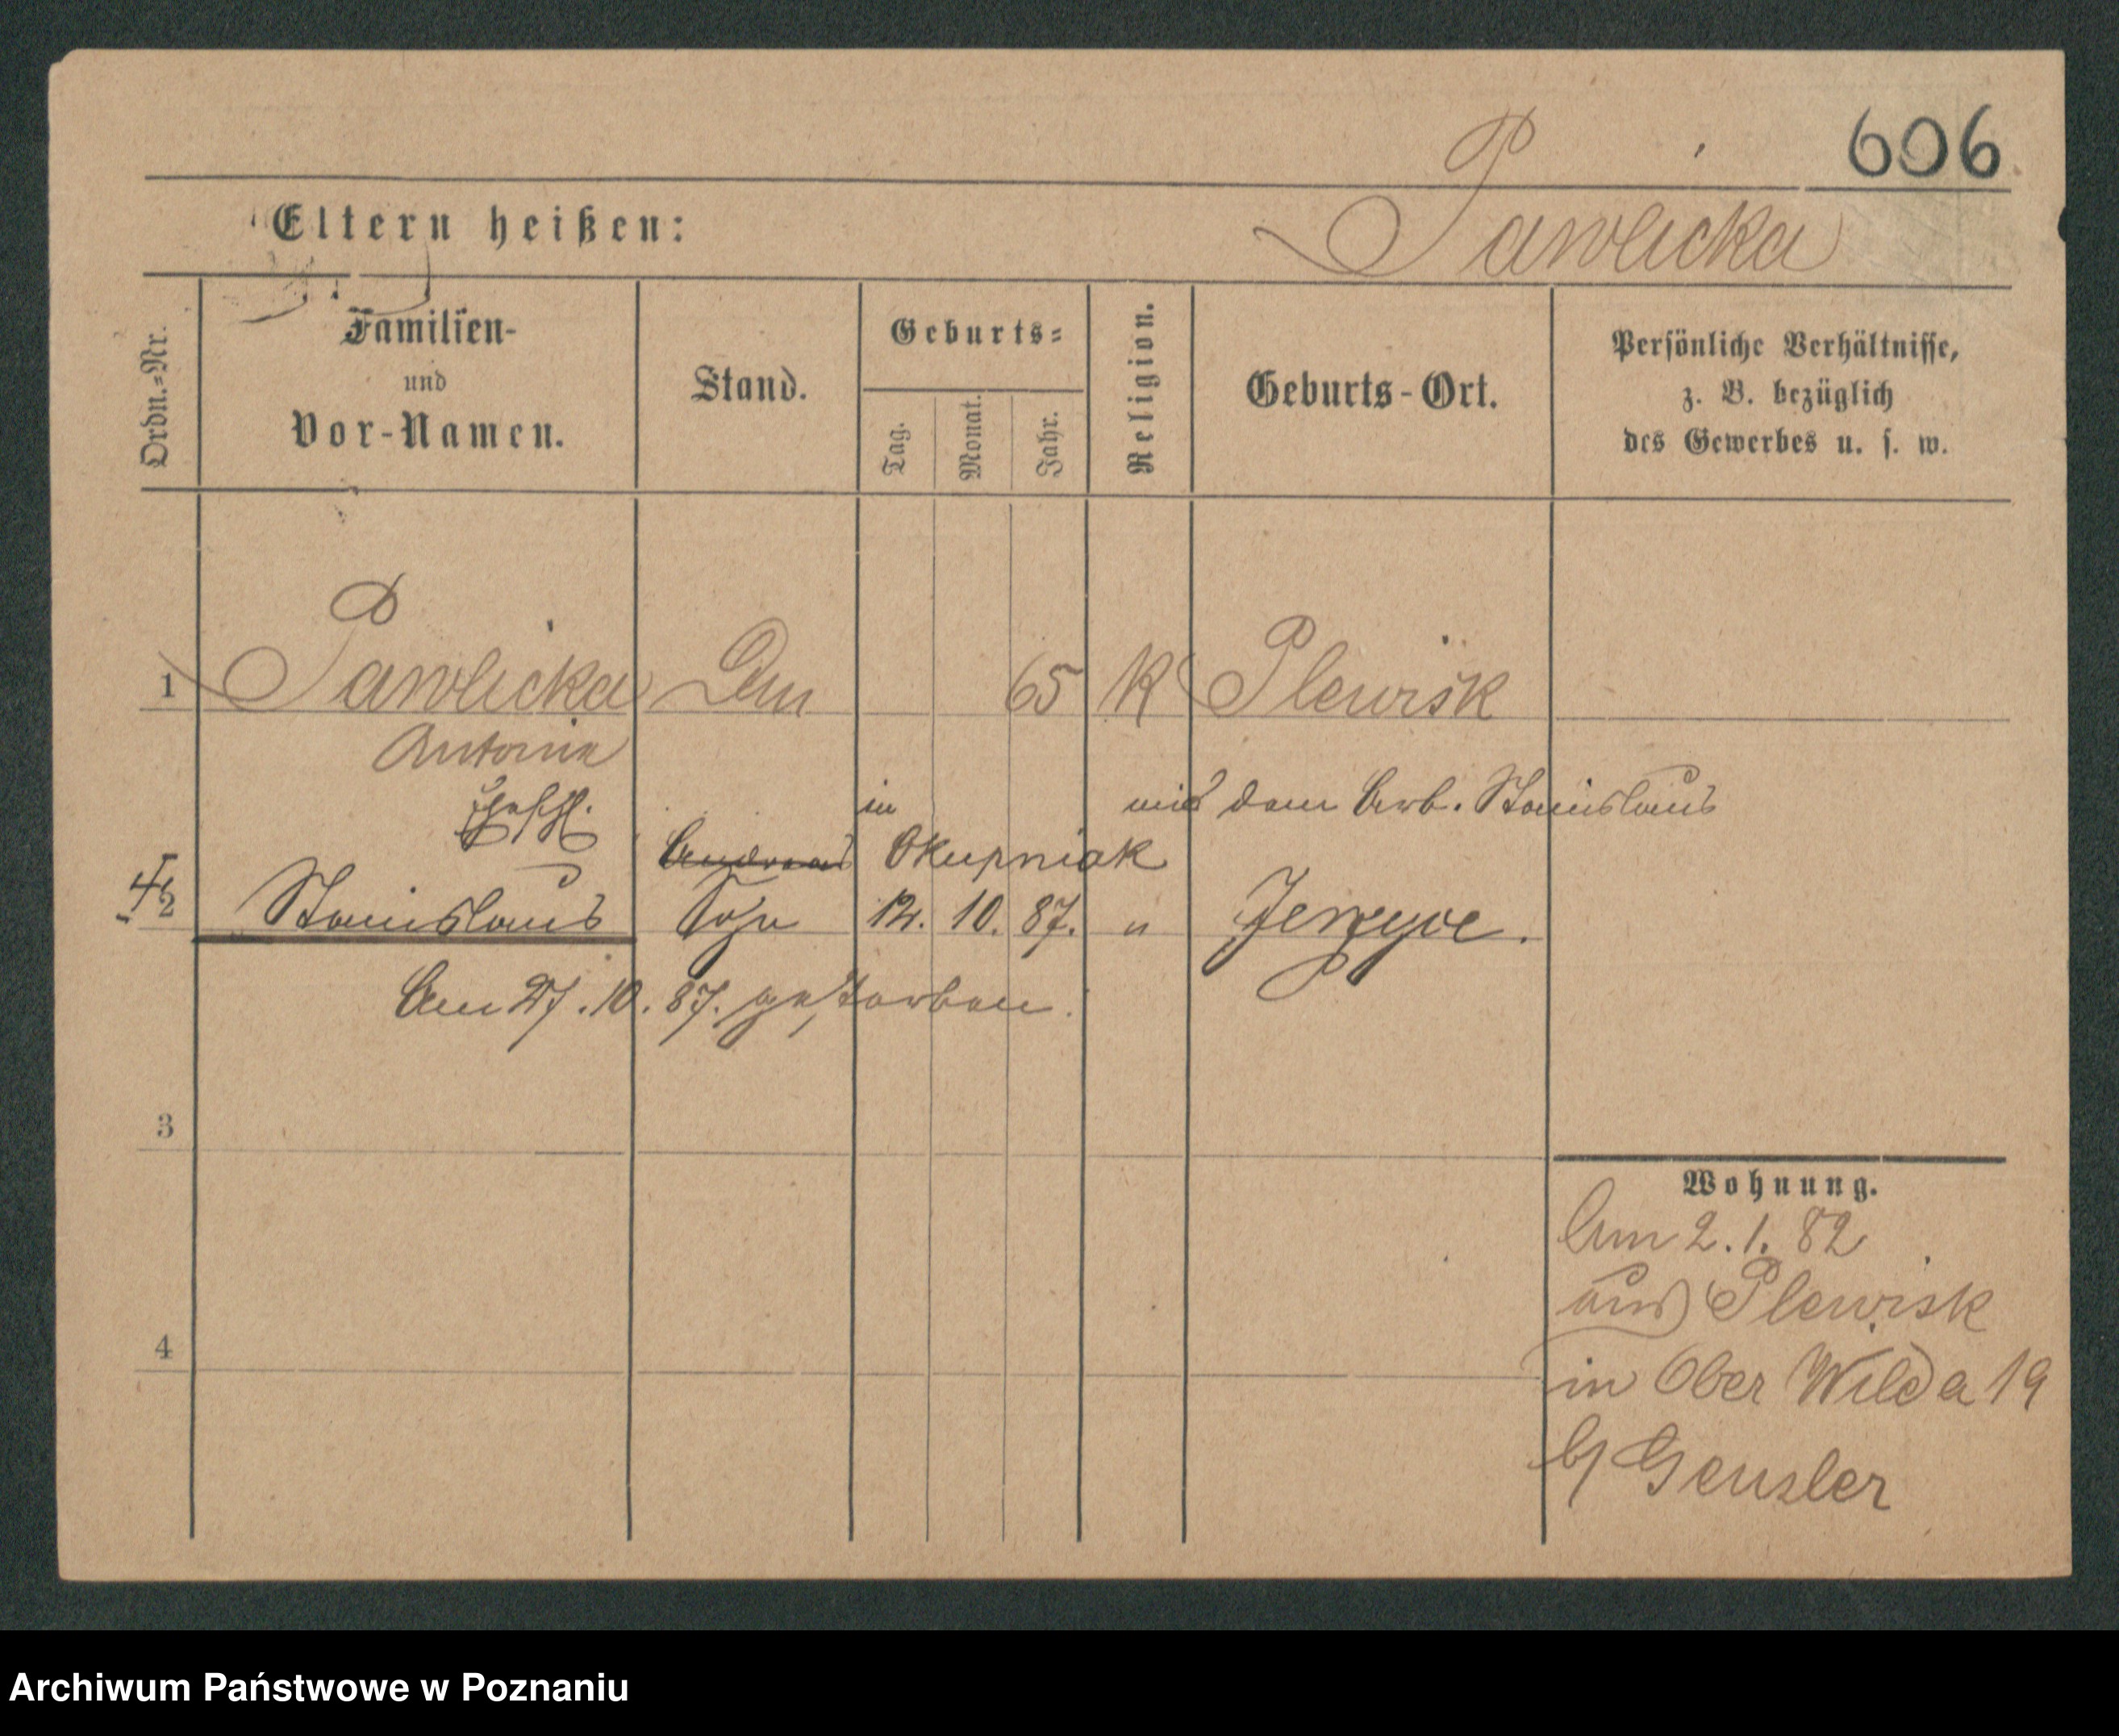 606
Pawlicka
Eltern heißen:
Ordn.=Nr.
Familien-
und
Vor-Namen.
Stand.
Geburts=
Tag.
Monat.
Jahr.
Religion.
Geburts-Ort.
Persönliche Verhältnisse,
z. B. bezüglich
des Gewerbes u. s. w.
1 Pawlicka 65 K Plewisk
Antonie
in mit dem Arb. Stanislaus
Andreas Okupniak
2 Stanislaus Sohn 12. 10. 87. " Jerzyce.
Am 27. 10. 87. gestorben.
3
4
Wohnung.
Am 2. 1. 82
aus Plewisk
in Ober Wilda 19
b/ Gensler
Archiwum Państwowe w Poznaniu